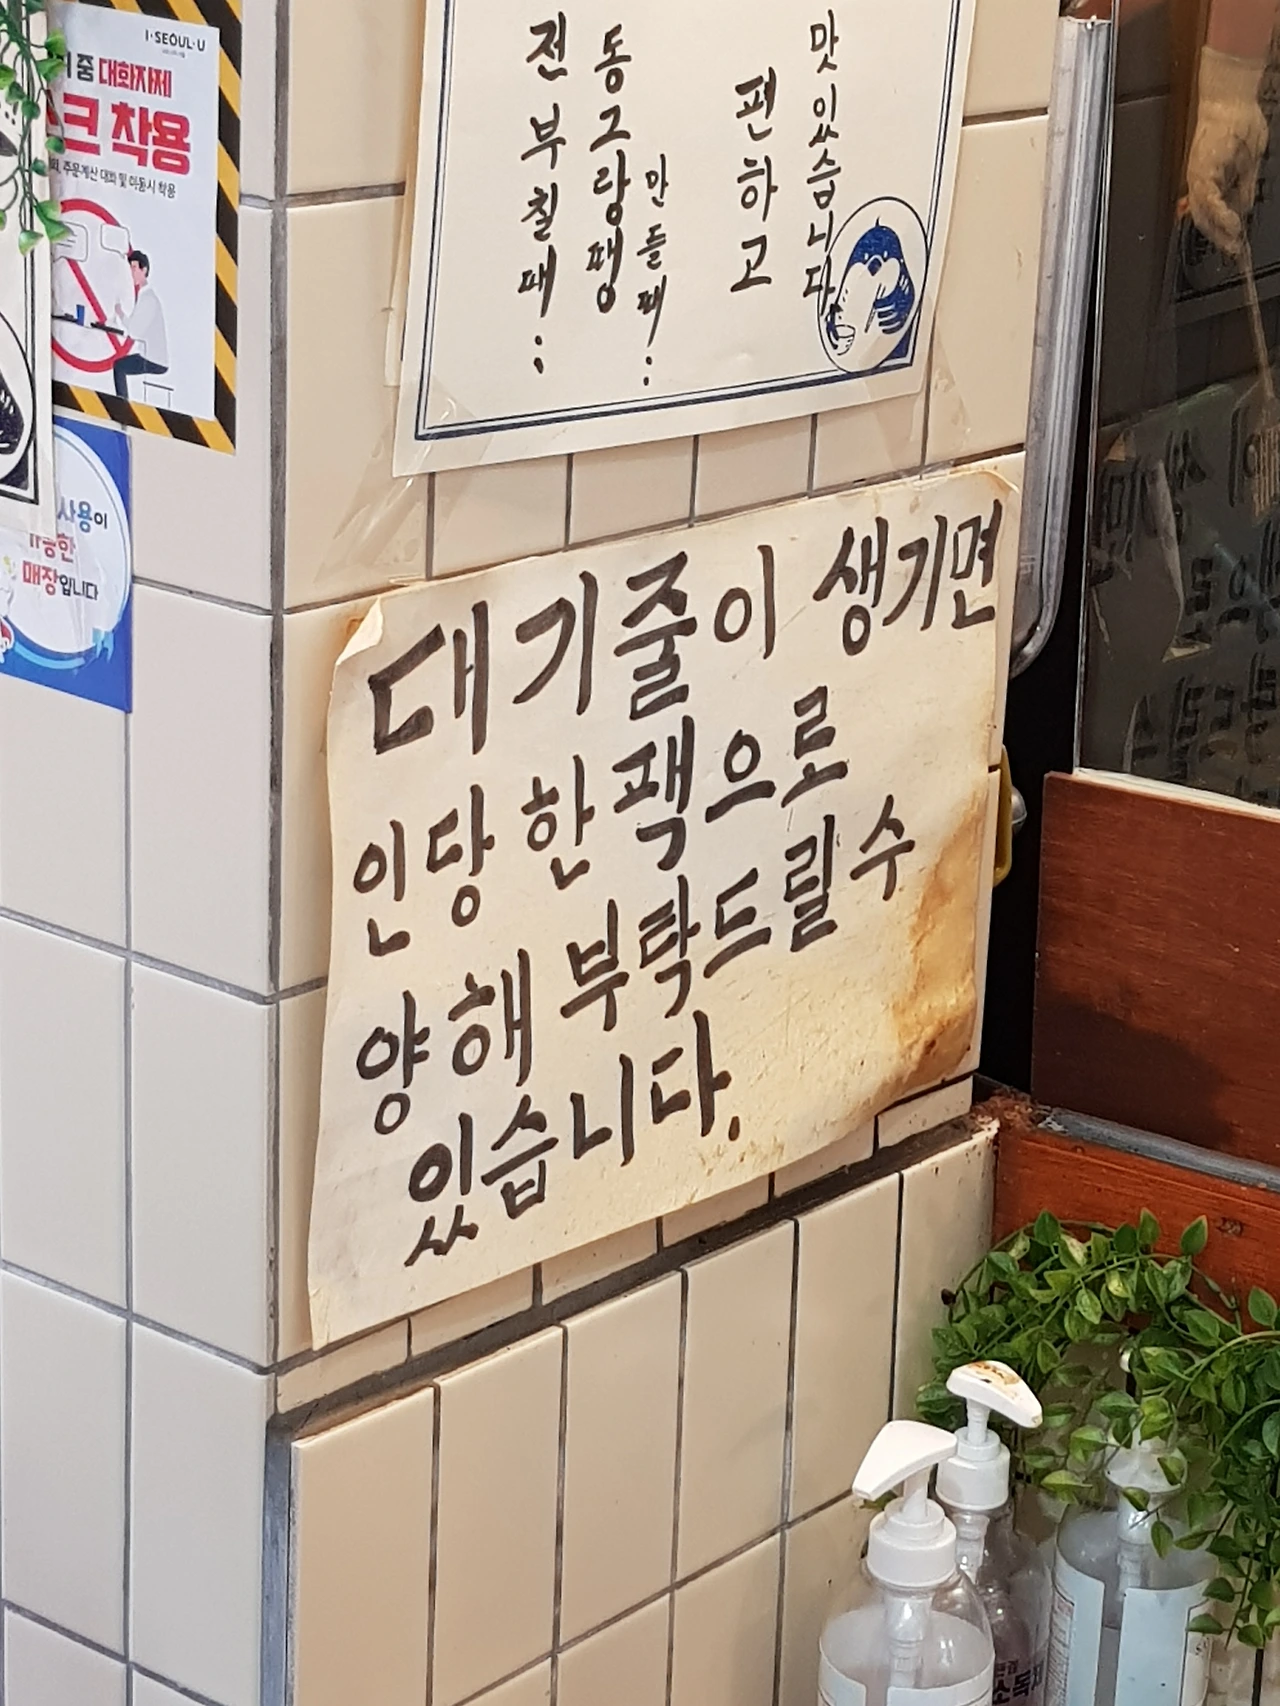 I·SEOUL·U
줌 대화자제
크 착용
주문계산 대화 및 이동시 착용
사용이
능한
매장입니다
맛있습니다
편하고
만들때:
동그랑땡
전부칠때:
대기줄이 생기면
인당 한팩으로
양해 부탁드릴 수
있습니다.